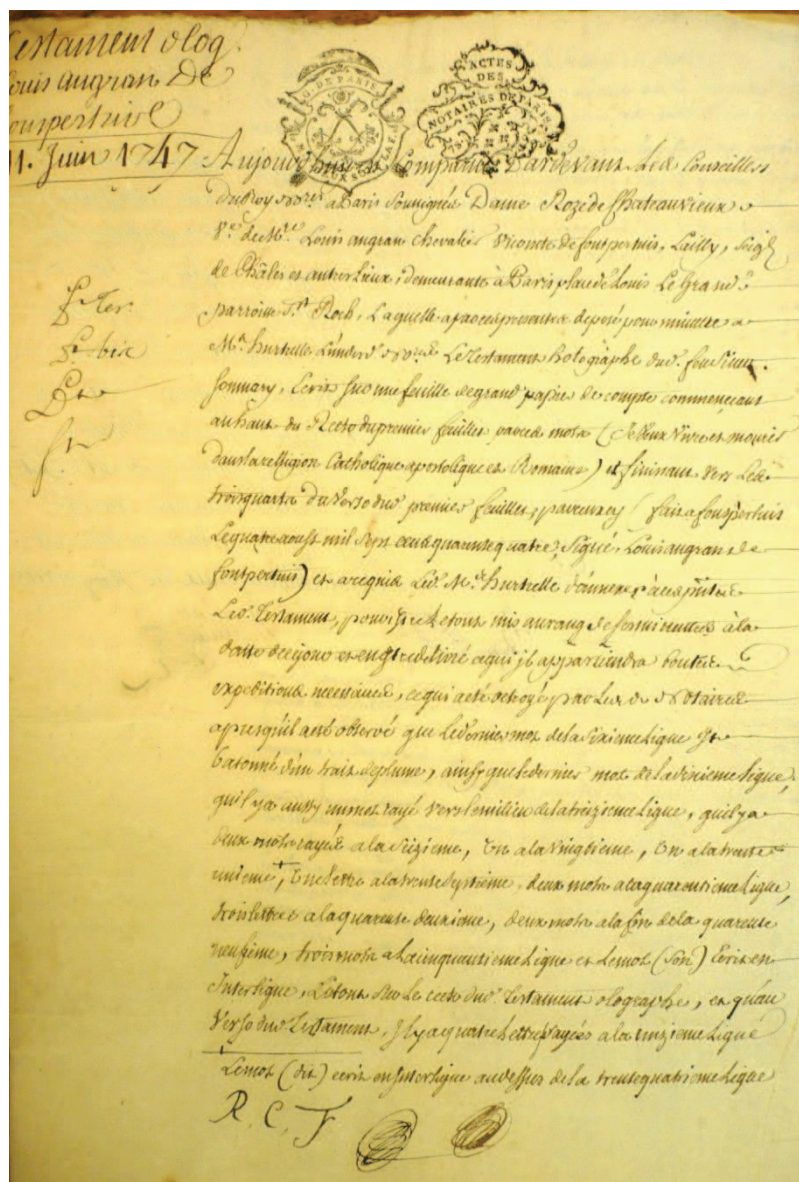 Testament olog.
Louis angran De
fonpertuis
11. Juin 1747
G. DE PARIS
ACTES
DES
NOTAIRES DE PARIS
Aujourdhuy est Comparue Pardevant Les Conseillers
Du Roy a Paris soussignés Dame Roze de Chateauvieux
Ve. de Mre. Louis angran chevalier Vicomte de fonpertuis, Lailly, seigr.
de Châles et autres Lieux, demeurante à Paris place de Louis Le Grand
parroisse St. Roch, Laquelle a par ces presentes deposé pour minutte a
Me. hurtrelle L'un des Le Testament holographe dud. feu sieur
Ecrit sur une feuille de grand papier de compte commençant
au haut du Recto du premier feuillet par ces mots (Je veux vivre et mourir
dans la relligion Catholique apostolique et Romaine) et finissant vers Les
trois quarts du Verso dud. premier feuillet, par ceux cy (fait a fonspertuis
Le quatre aoust mil sept cens quarante quatre, signé, Louis angran de
fontpertuis) et a requis led. Me. hurtrelle d'annexer à ces pntes
Led. Testament, pour estre Le tout mis au rang de ses minuttes à la
datte de ce jour et en estre delivré a qui il appartiendra toutes
expeditions necessaires, ce qui a été octroyé par Les d. Notaires
apres qu'il a esté observé que Le dernier mot de la sixieme Ligne est
batonné d'un trait de plume, ainsy que le dernier mot de la dixieme Ligne,
qu'il y a aussy un mot rayé vers le milieu de la treizieme Ligne, qu'il y a
deux mots rayés a la seizieme, Un a la vingtieme, Un a la trente
unieme +, Une lettre a la trente septieme, deux mots a la quarantieme Ligne,
trois lettres a la quarente deuxieme, deux mots a la fin de la quarente
neufieme, trois mots a La cinquantieme Ligne et Le mot (son) Ecrit en
Interligne, Le tout sur Le recto dud. Testament olographe, et qu'au
Verso dud. Testament, Il y a quatre Lettres rayées a la onzieme Ligne
+ Le mot (dit) ecrit en Interligne au dessus de la trente quatrieme Ligne
R. C. F